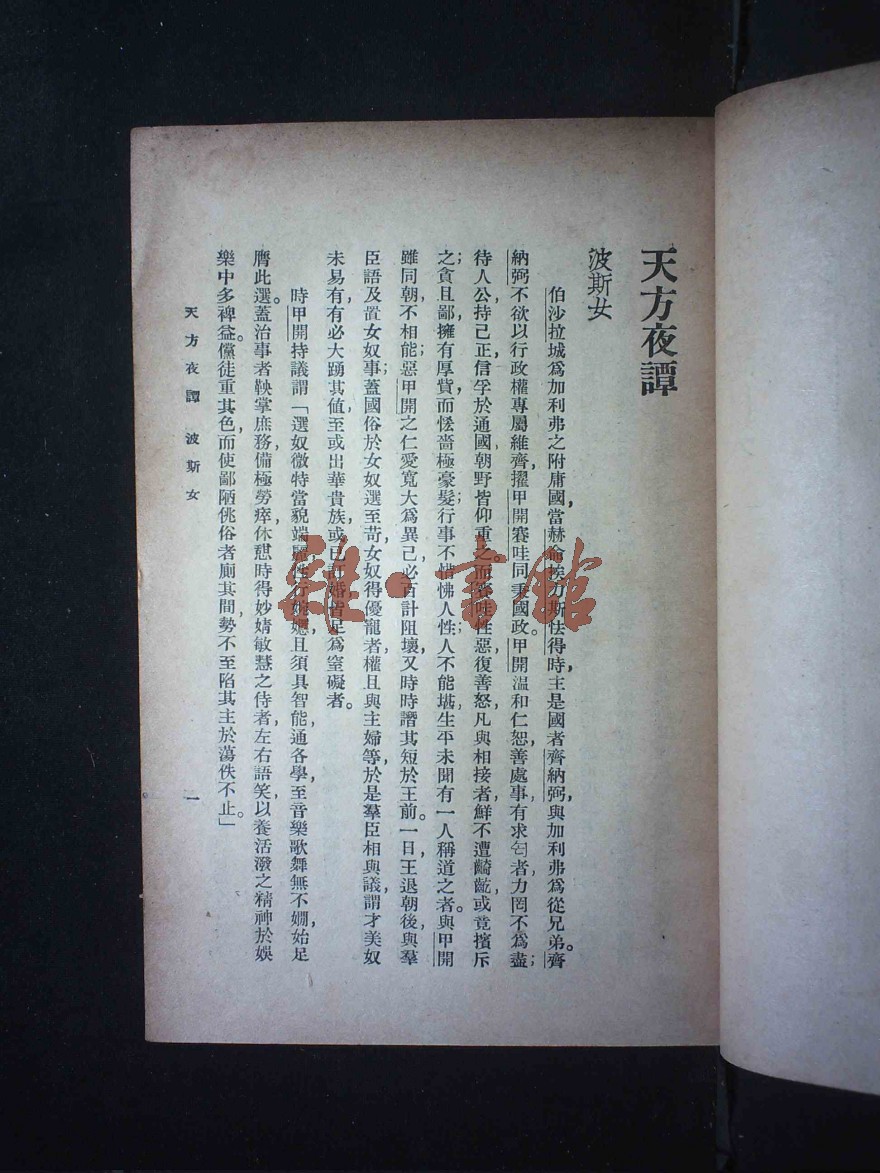 天方夜譚
波斯女
伯沙拉城爲加利弗之附庸國，當赫倫挨力斯怯得時，主是國者齊納弼，與加利弗爲從兄弟。齊
納弼不欲以行政權專屬維齊，擢甲開賽哇同秉國政。甲開温和仁恕，善處事，有求匄者，力罔不爲盡；
待人公，持己正，信孚於通國，朝野皆仰重之。而賽哇性惡，復善怒，凡與相接者，鮮不遭齮齕，或竟擯斥
之；貪且鄙，擁有厚貲，而慳嗇極豪髮；行事不惜怫人性；人不能堪，生平未聞有一人稱道之者。與甲開
雖同朝，不相能；惡甲開之仁愛寬大爲異己，必百計阻壞，又時時譖其短於王前。一日，王退朝後，與羣
臣語及置女奴事；蓋國俗於女奴選至苛，女奴得優寵者，權且與主婦等，於是羣臣相與議，謂才美奴
未易有，有必大踴其值，至或出華貴族，或已訂婚，皆足爲窒礙者。
時甲開持議，謂「選奴微特當貌端麗，性行婉嫕，且須具智能，通各學，至音樂歌舞，無不嫺，始足
膺此選。蓋治事者鞅掌庶務，備極勞瘁，休憩時得妙婧敏慧之侍者，左右語笑，以養活潑之精神，於娛
樂中多裨益。儻徒重其色，而使鄙陋佻俗者廁其間，勢不至陷其主於蕩佚不止。」
天方夜譚 波斯女 一
雜·書館